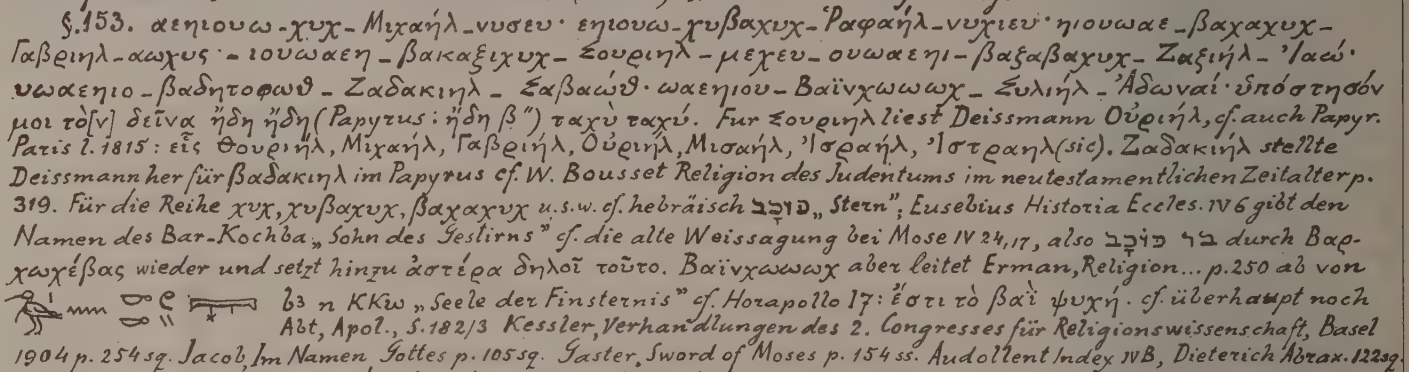 §.153. αεηιουω-χυχ-Μιχαήλ-νυσευ· εηιουω-χυβαχυχ-Ῥαφαήλ-νυχιευ· ηιουωαε-βαχαχυχ-
Γαβριηλ-αωχυς·-ιουωαεη-βακαξιχυχ-Σουριηλ-μεχευ-ουωαεηι-βαξαβαχυχ-Ζαξιήλ-Ἰαώ·
υωαεηιο-βαδητοφωθ-Ζαδακιηλ-Σαβαώθ· ωαεηιου-Βαϊνχωωωχ-Συλιήλ-Ἀδωναί· ὑπόστησόν
μοι τὸ[ν] δεῖνα ἤδη ἤδη (Papyrus: ἤδη β̋) ταχὺ ταχύ. Für Σουριηλ liest Deissmann Οὐριήλ, cf. auch Papyr.
Paris l. 1815: εἷς Θουριήλ, Μιχαήλ, Γαβριήλ, Οὐριήλ, Μισαήλ, Ἰσραήλ, Ἰστραηλ (sic). Ζαδακιήλ stellte
Deissmann her für βαδακιηλ im Papyrus cf. W. Bousset Religion des Judentums im neutestamentlichen Zeitalter p.
319. Für die Reihe χυχ, χυβαχυχ, βαχαχυχ u.s.w. cf. hebräisch כּוֹכָב „Stern”; Eusebius Historia Eccles. IV 6 gibt den
Namen des Bar-Kochba „Sohn des Gestirns” cf. die alte Weissagung bei Mose IV 24,17, also בר כּוֹכָב durch Βαρ-
χωχέβας wieder und setzt hinzu ἀστέρα δηλοῖ τοῦτο. Βαϊνχωωωχ aber leitet Erman, Religion... p. 250 ab von
bꜣ n KKw „Seele der Finsternis” cf. Horapollo I 7: ἔστι τὸ βαῒ ψυχή. cf. überhaupt noch
Abt, Apol., S. 182/3 Kessler, Verhandlungen des 2. Congresses für Religionswissenschaft, Basel
1904 p. 254 sq. Jacob, Im Namen Gottes p. 105 sq. Gaster, Sword of Moses p. 154 ss. Audollent Index IV B, Dieterich Abrax. 122 sq.